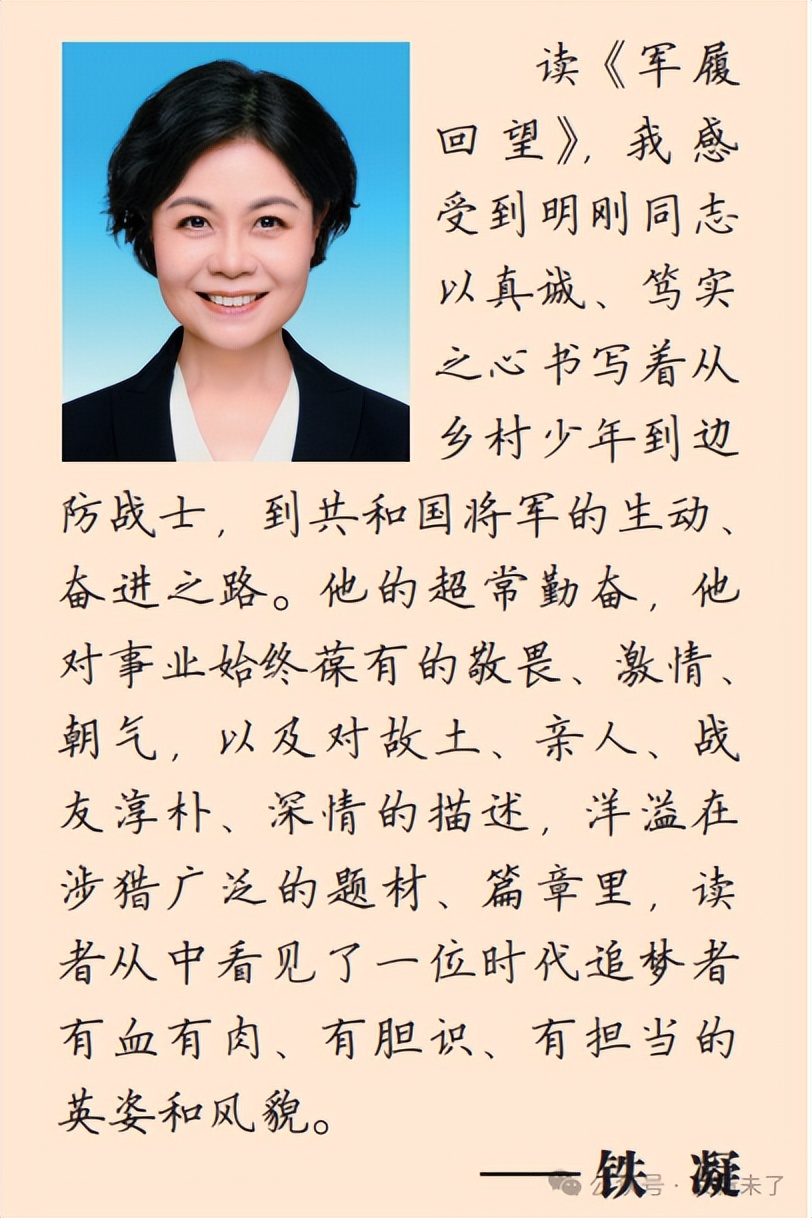 读《军履
回望》，我感
受到明刚同志
以真诚、笃实
之心书写着从
乡村少年到边
防战士，到共和国将军的生动、
奋进之路。他的超常勤奋，他
对事业始终葆有的敬畏、激情、
朝气，以及对故土、亲人、战
友淳朴、深情的描述，洋溢在
涉猎广泛的题材、篇章里，读
者从中看见了一位时代追梦者
有血有肉、有胆识、有担当的
英姿和风貌。
——铁 凝
公众号·未了